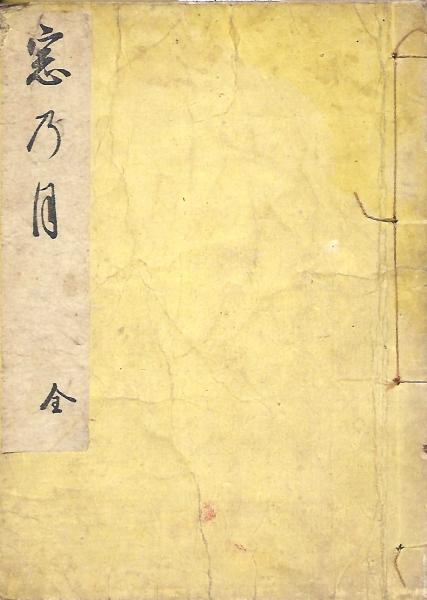 窓乃月
全